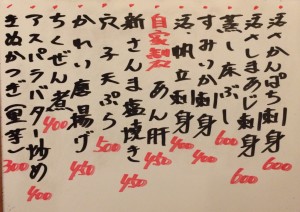 活かんぱち刺身 600
活しまあじ刺身 600
蒸し床ぶし 600
すみいか刺身 400
活・帆立刺身 400
自家製あん肝 450
新さんま塩焼き 450
穴子天ぷら 500
かれい唐揚げ 450
ちくぜん煮 400
アスパラバター炒め 400
きぬかつぎ(里芋) 300